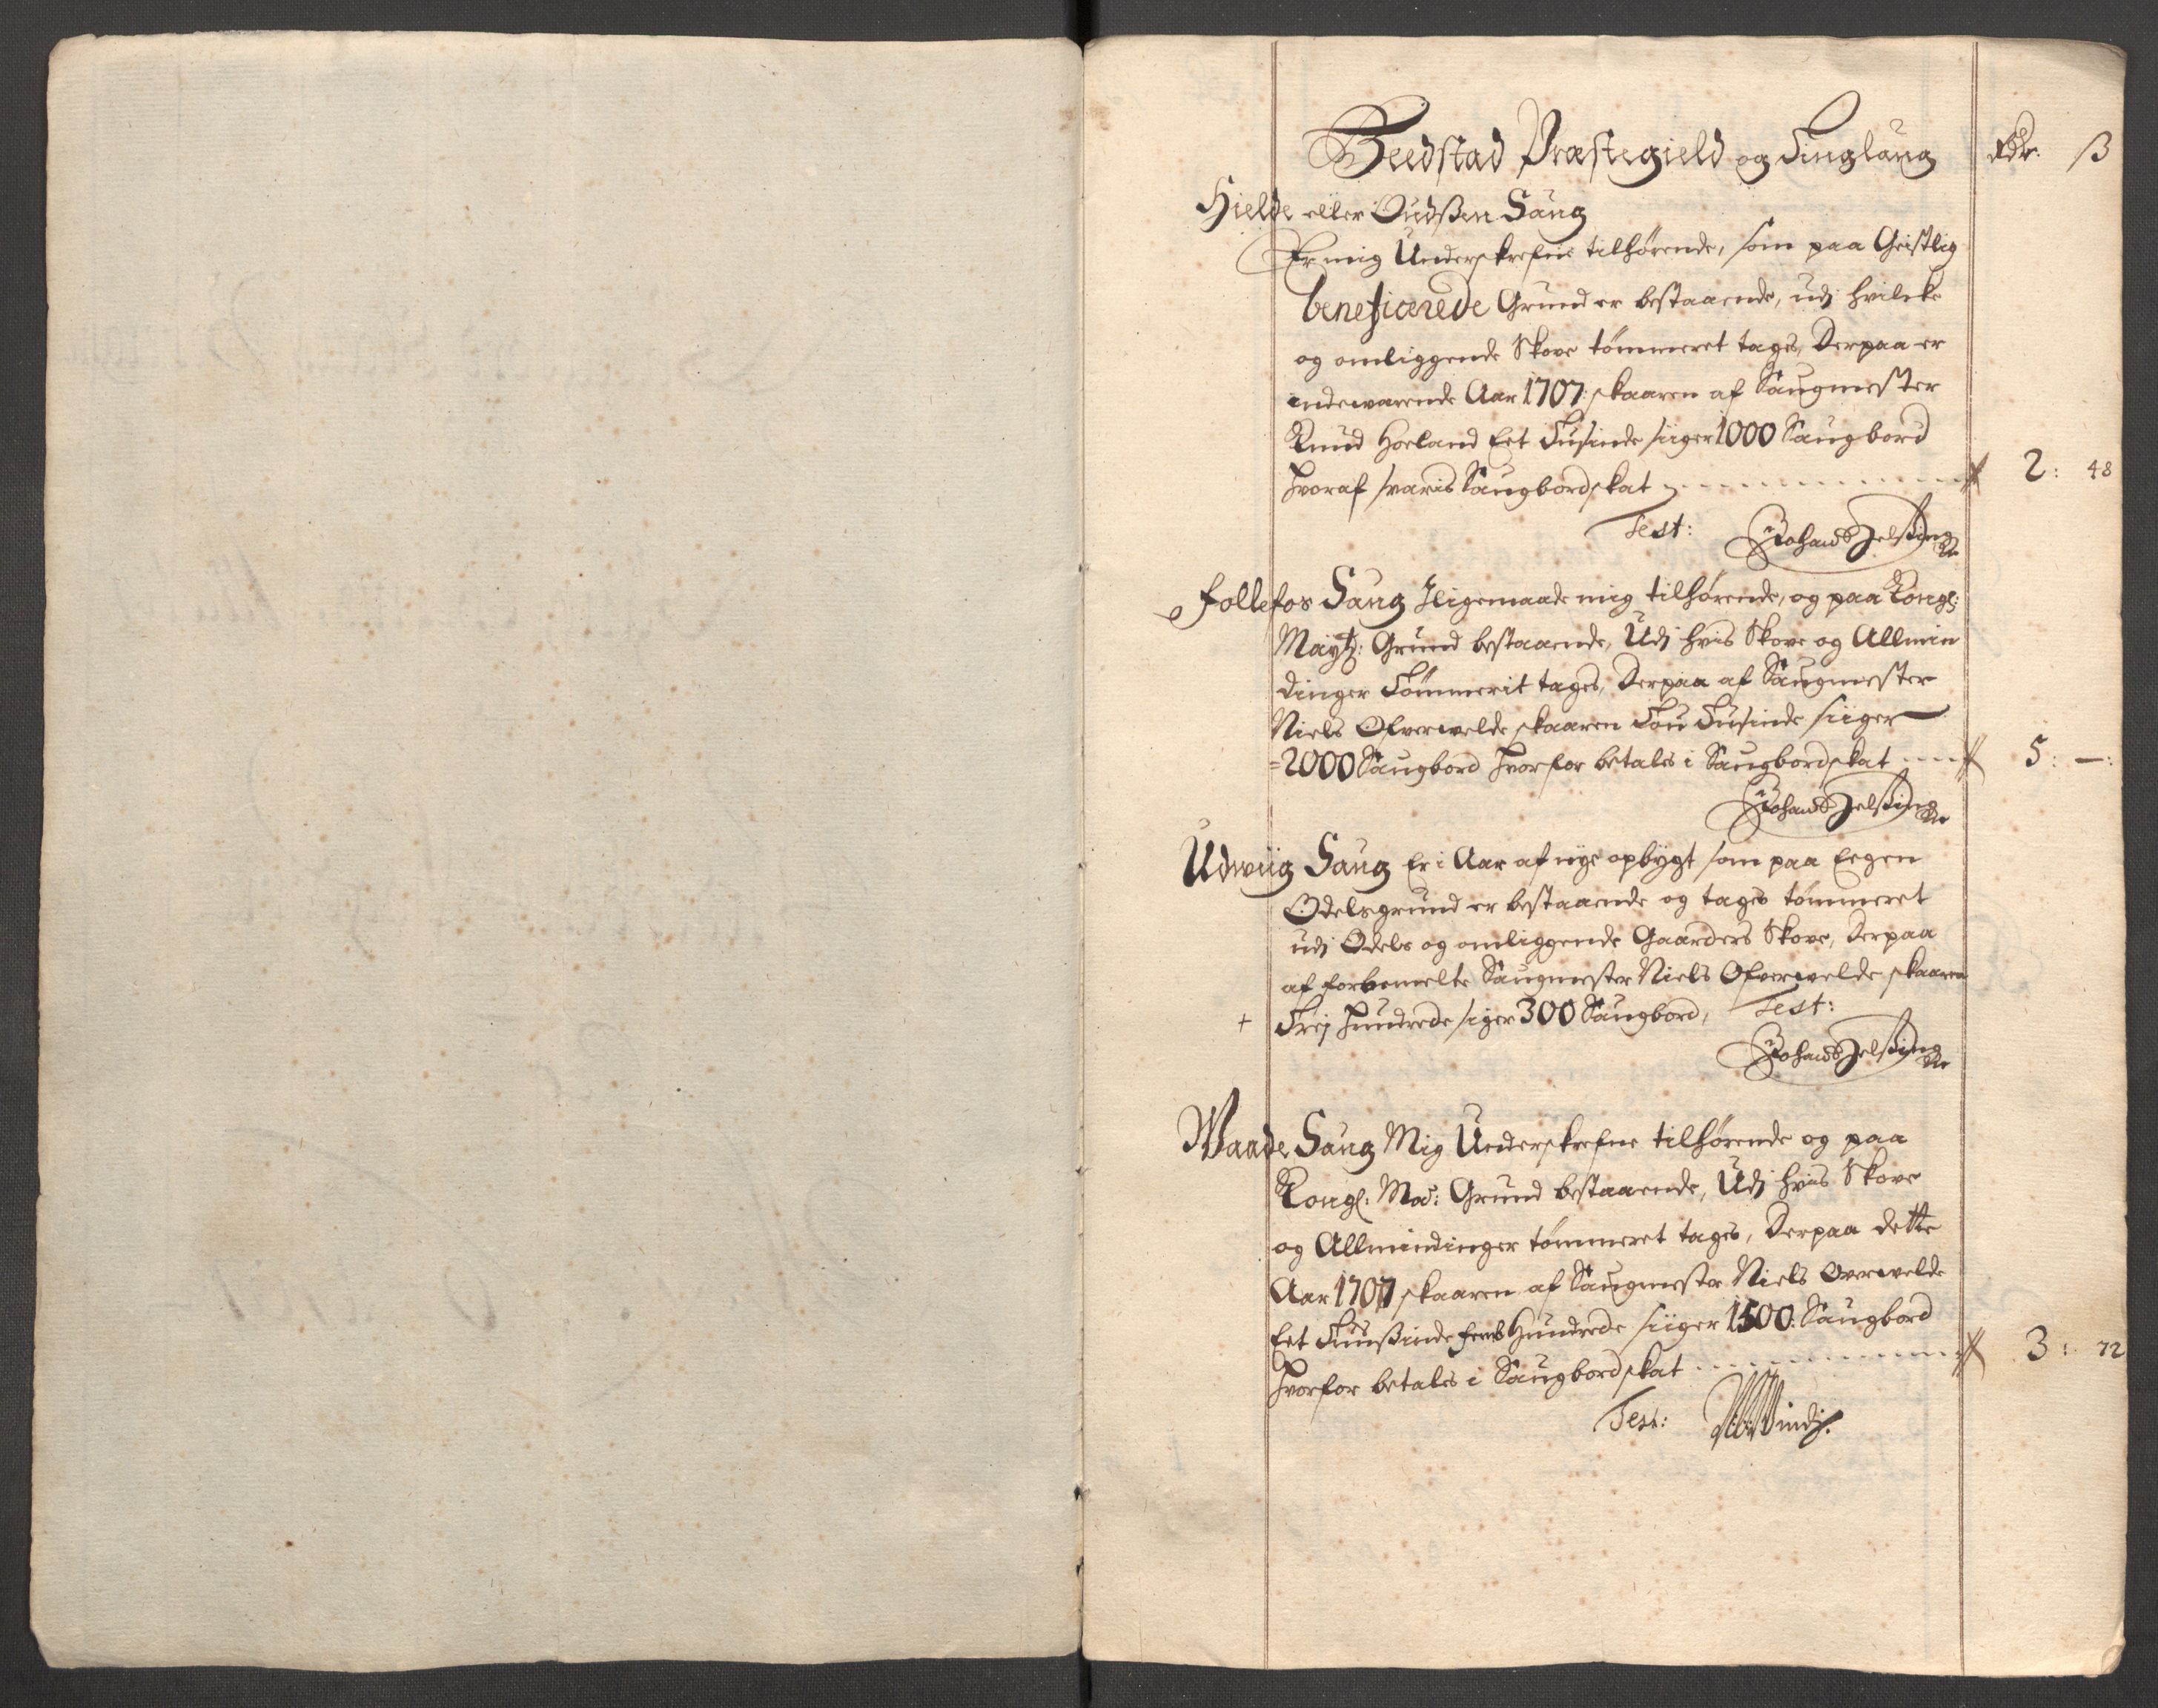 Beedstad Præstegield og Tinglaug Rdr. ß
Hielde eller Oudßen Saug
Er mig Underskrefne tilhørende, som paa Geistlig
beneficerede Grund er bestaaende, udj hvilcke
og omliggende Skove tømmeret tages, Derpaa er
indewærende Aar 1707: skaaren af Saugmester
Knud Hoeland Eet Tusinde siiger 1000 Saugbord
Hvoraf svaris Saugbordskat 2: 48
Test:
Follefos Saug Iligemaade mig tilhørende, og paa Kongl:
Maytz: Grund bestaaende, Udj hvis Skove og Allmin
dinger Tømmerit tages, Derpaa af Saugmester
Niels Ofverwelde skaaren Tou Tusinde siiger
=2000 Saugbord Hvorfor betales i Saugbordskat 5: —:
Udwiig Saug Er i Aar af nye opbygt som paa Eegen
Odelsgrund er bestaaende og tages tømmeret
udj Odels og omliggende Gaarders Skove, Derpaa
af forbemelte Saugmester Niels Ofverwelde skaaren
+ Trej Hundrede siger 300 Saugbord, Test:
Waade Saug Mig Underskrefne tilhørende og paa
Kongl: May: Grund bestaaende, Udj hvis Skove
og Allmindinger tømmeret tages, Derpaa dette
Aar 1707 skaaren af Saugmester Niels Overwelde
Eet Tuußinde fem Hundrede siiger 1500: Saugbord
Hvorfor betales i Saugbordskat 3: 72
Test: